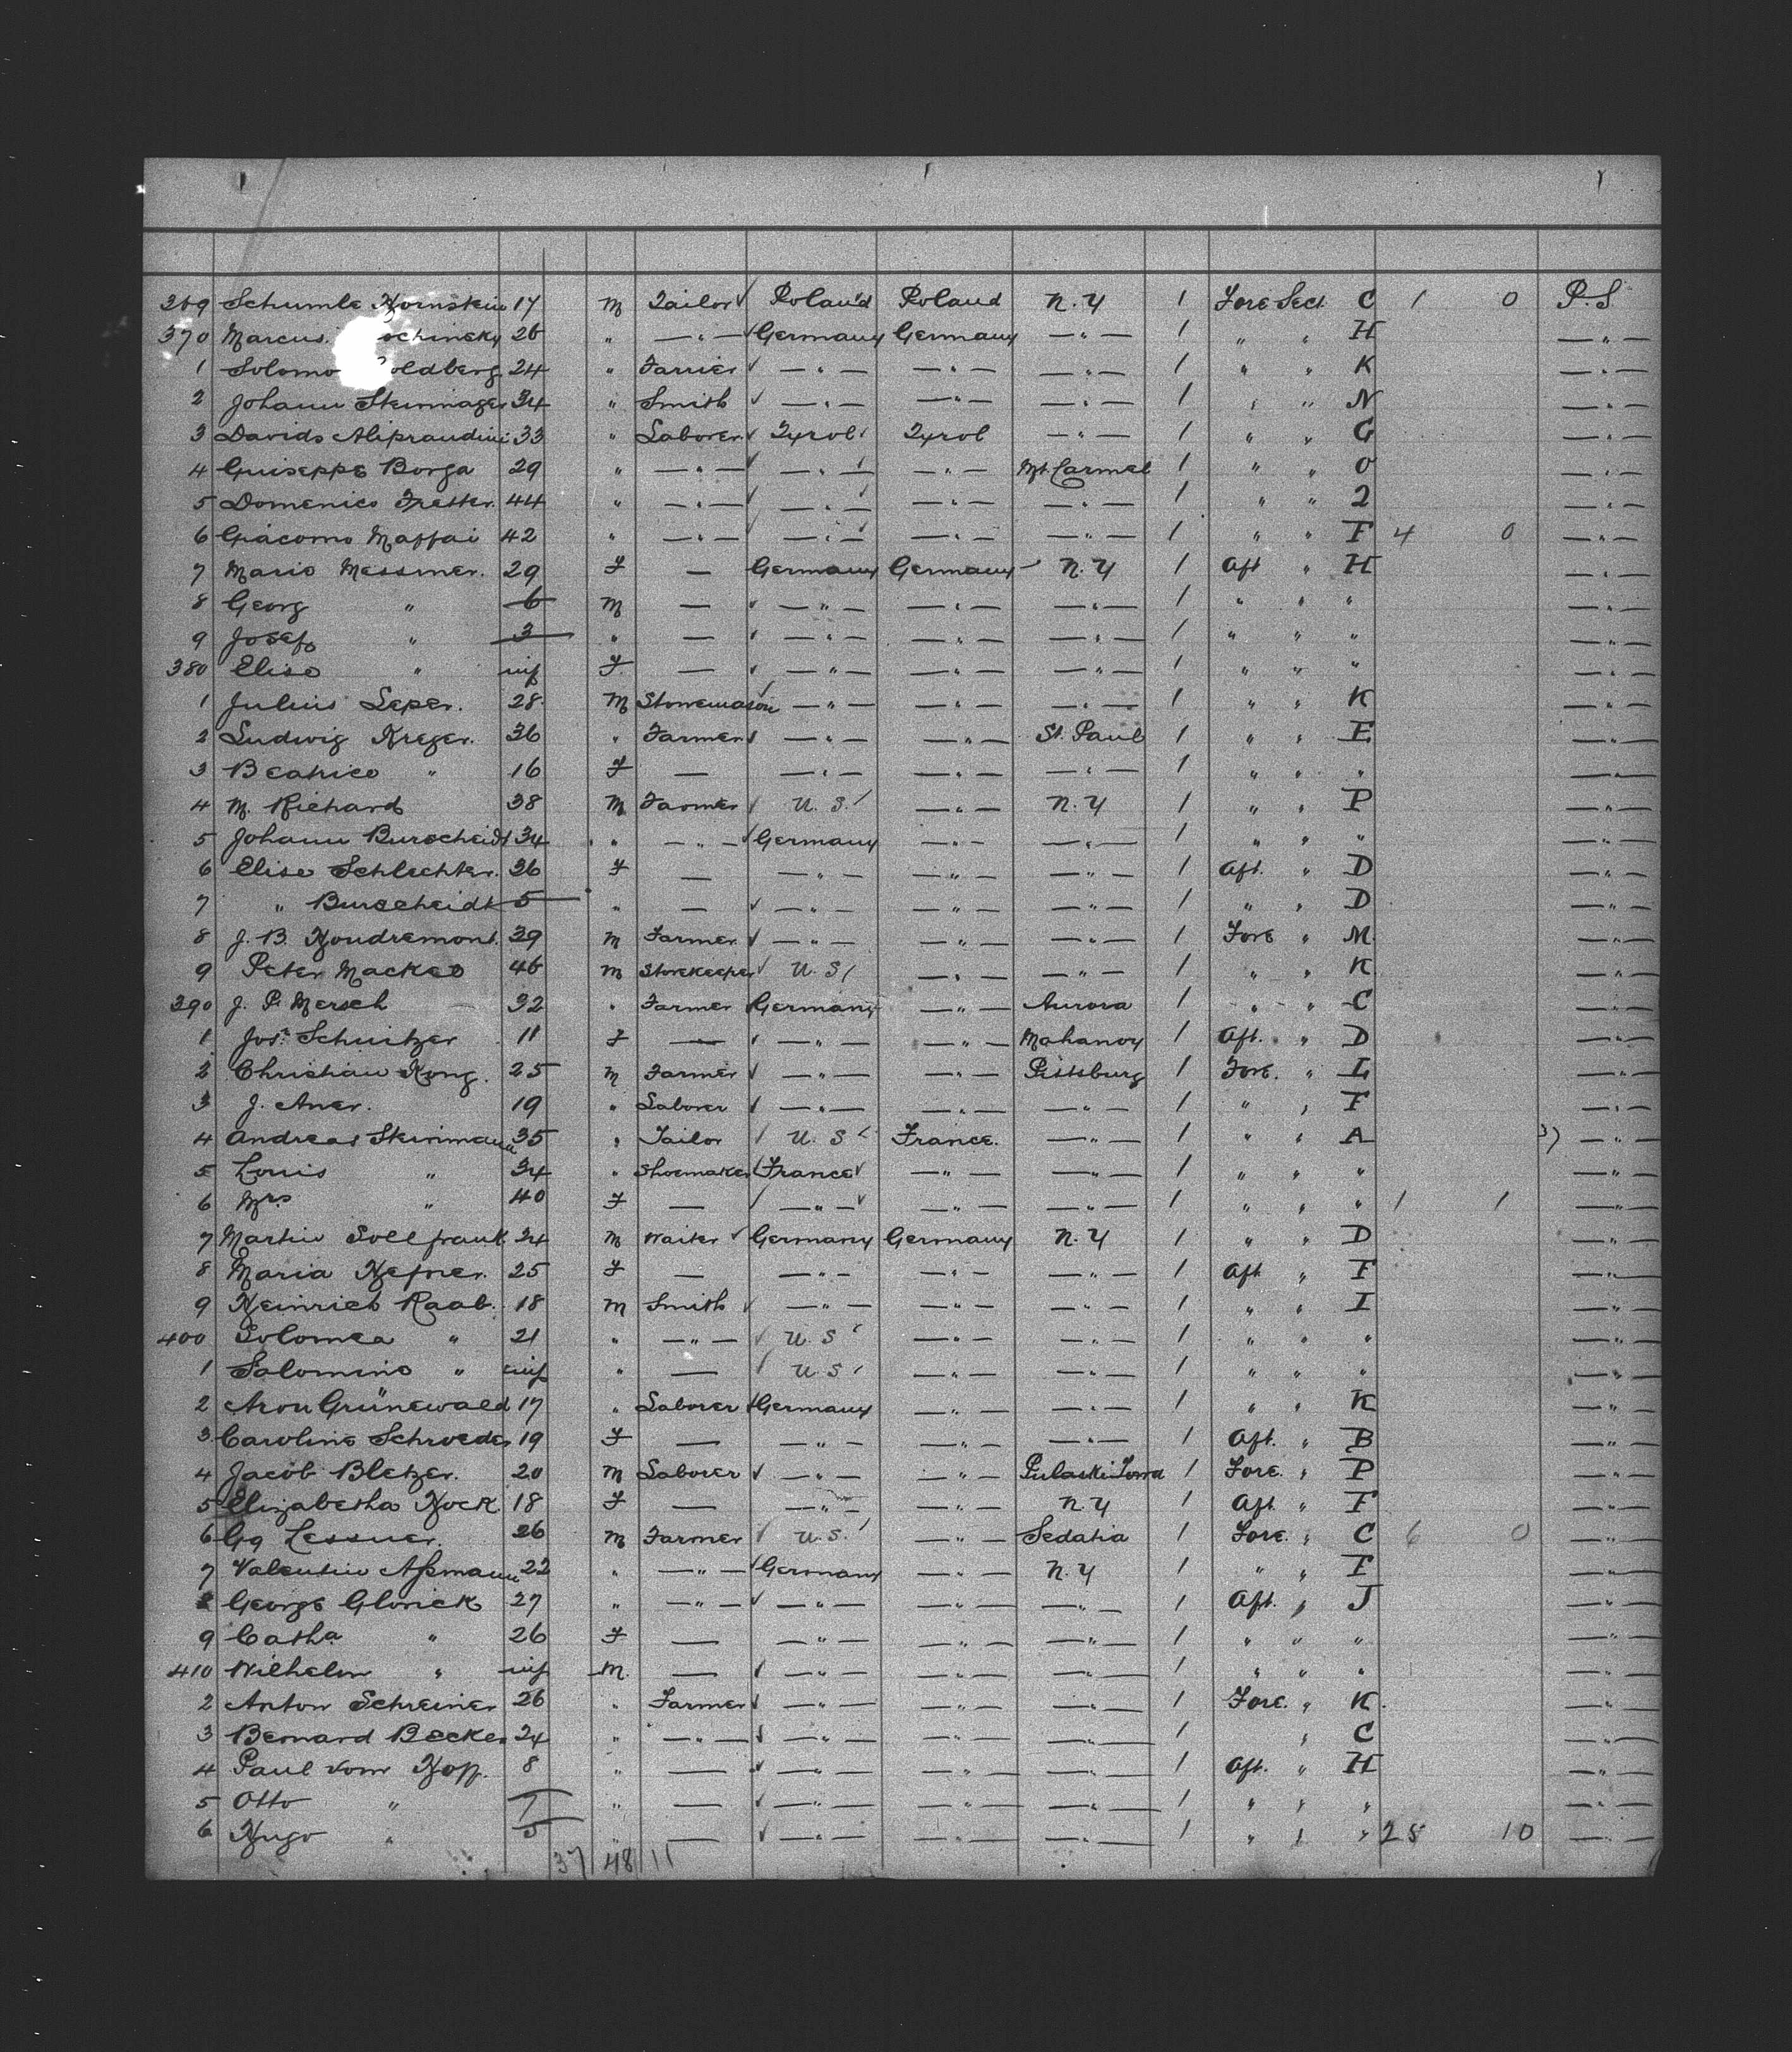 369 Schumle Hornstein 17 M Tailor ✓ Poland Poland N.Y 1 Fore Sect. C 1 0 P.S
370 Marcus ochinsky 26 " —"— ✓ Germany Germany —"— 1 " " H —"—
1 Solomo oldberg 24 " Farrier ✓ —"— —"— —"— 1 " " K —"—
2 Johann Steinmager 34 " Smith ✓ —"— —"— —"— 1 " " N —"—
3 Davido Aliprandini 33 " Laborer ✓ Tyrol Tyrol —"— 1 " " G —"—
4 Guiseppe Borga 29 " —"— ✓ —"— —"— Mt. Carmel 1 " " O —"—
5 Domenico 44 " —"— ✓ —"— —"— —"— 1 " " 2 —"—
6 Giacomo Maffai 42 " —"— ✓ —"— —"— —"— 1 " " F 4 0 —"—
7 Marie Messmer. 29 F — Germany Germany N.Y 1 Aft " H —"—
8 Georg " 6 M — ✓ —"— —"— —"— 1 " " " —"—
9 Josef " 3 " — ✓ —"— —"— —"— 1 " " " —"—
380 Elise " inf F. — ✓ —"— —"— —"— 1 " " " —"—
1 Julius Leper. 28 M Stonemason ✓ —"— —"— —"— 1 " " K —"—
2 Ludwig Kreger. 36 " Farmer ✓ —"— —"— St. Paul 1 " " E —"—
3 Beatrice " 16 F — —"— —"— —"— 1 " " " —"—
4 M. Richard 38 M Farmer ✓ U.S. —"— N.Y 1 " " P —"—
5 Johann Burscheidt 34 " —"— ✓ Germany —"— —"— 1 " " " —"—
6 Elise Schlechter. 26 F — —"— —"— —"— 1 Aft. " D —"—
7 " Burscheidt 5 " — ✓ —"— —"— —"— 1 " " D —"—
8 J. B. Houdremont. 29 M Farmer ✓ —"— —"— —"— 1 Fore " M. —"—
9 Peter Mackes 46 M Storekeeper ✓ U.S —"— —"— 1 " " K —"—
390 J. P. Mersch 32 " Farmer Germany —"— Aurora 1 " " C —"—
1 Jos. Schnitzer 11 F — ✓ —"— —"— Mahanoy 1 Aft. " D —"—
2 Christian Kong. 25 M Farmer ✓ —"— —"— Pittsburg 1 Fore. " L —"—
3 J. Auer. 19 " Laborer ✓ —"— —"— —"— 1 " " F —"—
4 Andreas Steinmann 35 " Tailor ✓ U.S France. —"— 1 " " A 3) —"—
5 Louis " 34 " Shoemaker ✓ France ✓ —"— —"— 1 " " " —"—
6 Mrs " 40 F — ✓ —"— —"— —"— 1 " " " 1 1 —"—
7 Martin Sollfrank 24 M Waiter ✓ Germany Germany N.Y 1 " " D —"—
8 Maria Hefner. 25 F — —"— —"— —"— 1 Aft " F —"—
9 Heinrich Raab. 18 M Smith ✓ —"— —"— —"— 1 " " I —"—
400 Solomea " 21 " —"— ✓ U.S —"— —"— 1 " " " —"—
1 Salomine " inf " — ✓ U.S —"— —"— 1 " " " —"—
2 Aron Grünewald 17 " Laborer ✓ Germany —"— —"— 1 " " K —"—
3 Caroline Schroeder 19 F — —"— —"— —"— 1 Aft. " B —"—
4 Jacob Bletzer. 20 M Laborer ✓ —"— —"— Pulaski Iowa 1 Fore. " P —"—
5 Elizabetha Hock 18 F — —"— —"— N.Y 1 Aft. " F —"—
6 Gg Lessner. 26 M Farmer ✓ U.S. —"— Sedalia 1 Fore. " C 6 0 —"—
7 Valentin Aßmann 22 " —"— ✓ Germany —"— N.Y 1 " " F —"—
8 George Glorick 27 " —"— ✓ —"— —"— —"— 1 Aft. " J —"—
9 Catha " 26 F — —"— —"— —"— 1 " " " —"—
410 Wilhelm " inf M. — ✓ —"— —"— —"— 1 " " " —"—
2 Anton Schreiner 26 " Farmer ✓ —"— —"— —"— 1 Fore. " K. —"—
3 Bernard Becker 24 " —"— ✓ —"— —"— —"— 1 " C —"—
4 Paul vom Hoff. 8 " — ✓ —"— —"— —"— 1 Aft. " H —"—
5 Otto " 7 " — ✓ —"— —"— —"— 1 " " " —"—
6 Hugo " 5 " — ✓ —"— —"— —"— 1 " " " 28 10 —"—
37 48 11